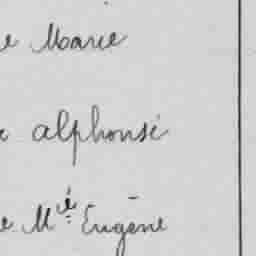 e Marie
e alphonse
e M.ie Eugène